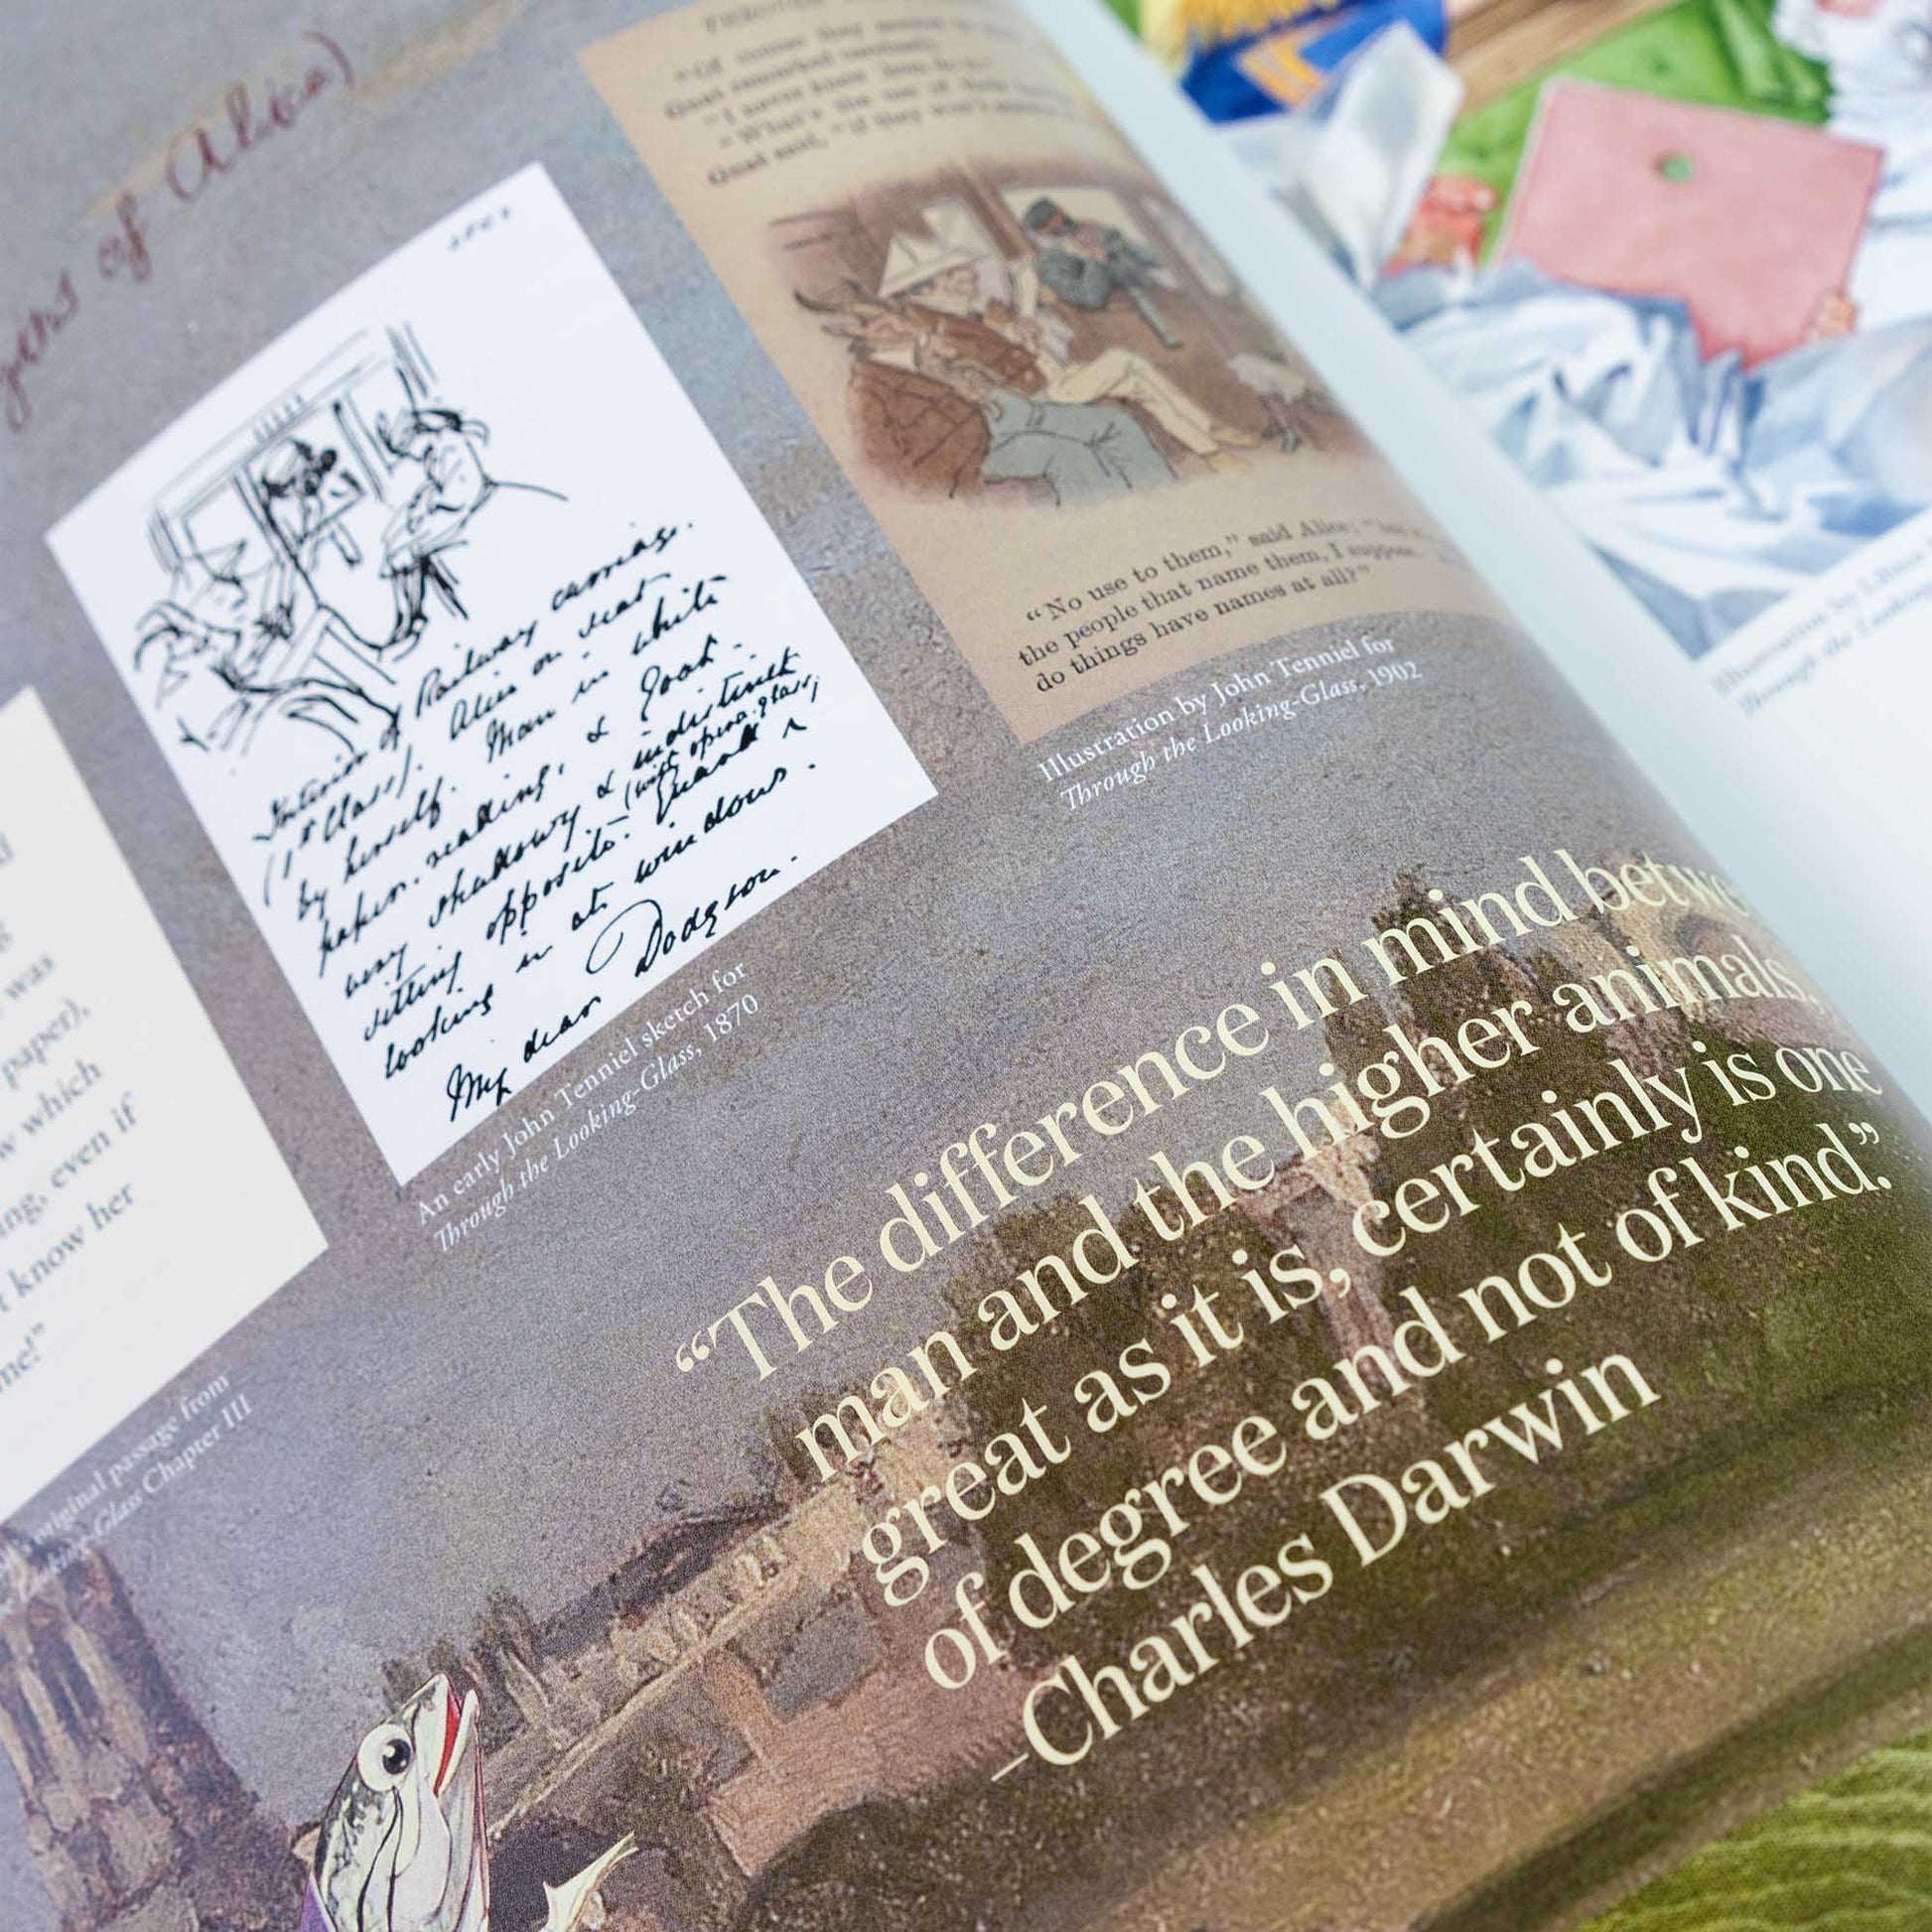 of Alice)
"Of course they
Goat remarked carelessly.
"I never knew them do it."
"What's the use of their
Goat said, "if they won't answer
"No use to them," said Alice; "but
the people that name them, I suppose.
do things have names at all?"
Illustration by John Tenniel for
Through the Looking-Glass, 1902
Interior of Railway carriage
(1st Class). Alice on seat
by herself. Man in white
paper. reading, & Goat.
very shadowy & indistinct
sitting opposite. Guard (with opera-glass)
looking in at window.
My dear Dodgson.
An early John Tenniel sketch for
Through the Looking-Glass, 1870
was
paper),
which
even if
know her
me!"
original passage from
Glass Chapter III
"The difference in mind
man and the higher animals,
great as it is, certainly is one
of degree and not of kind."
–Charles Darwin
Illustration by
Through the Looking